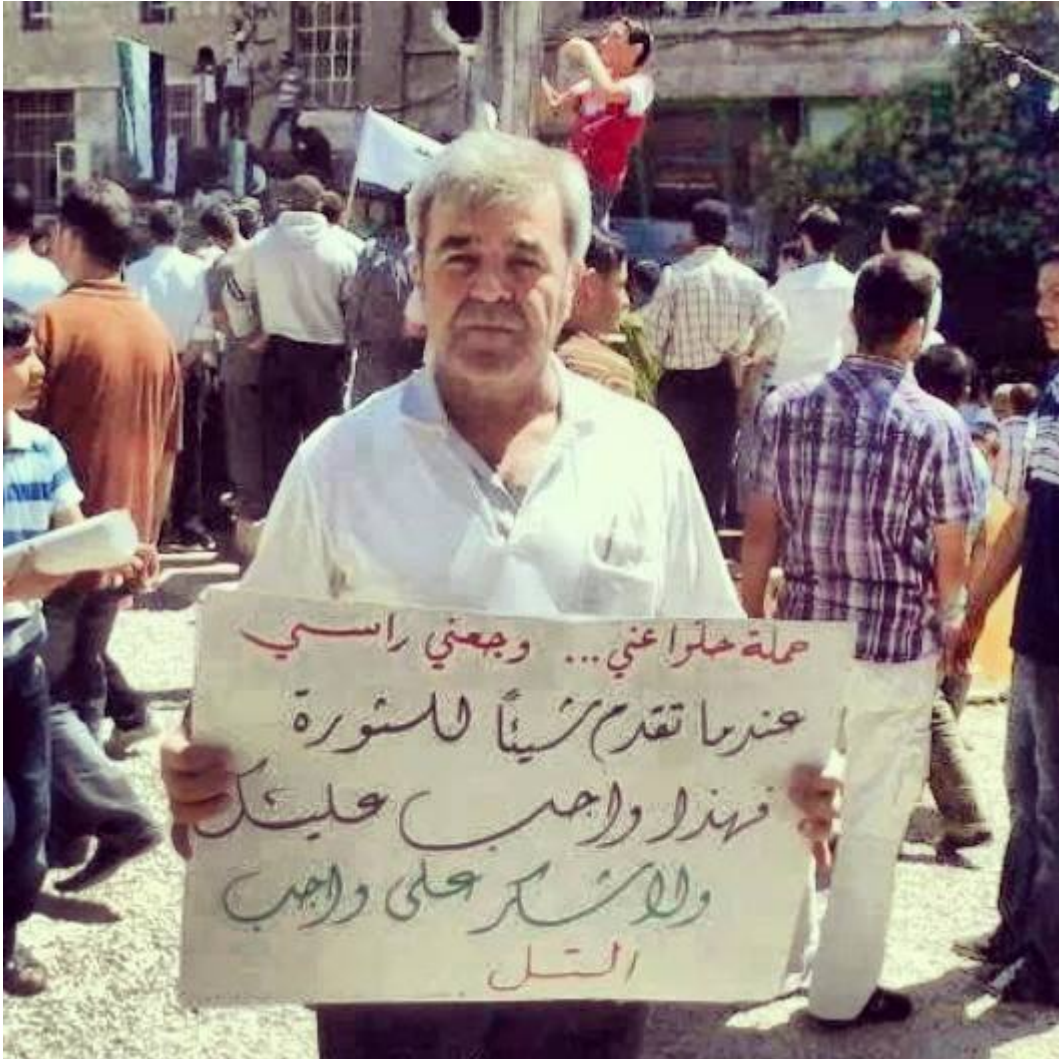 حملة حلوا عني... وجعني راسي
عندما تقدم شيئاً للثورة
فهذا واجب عليك
ولا شكر على واجب
التل